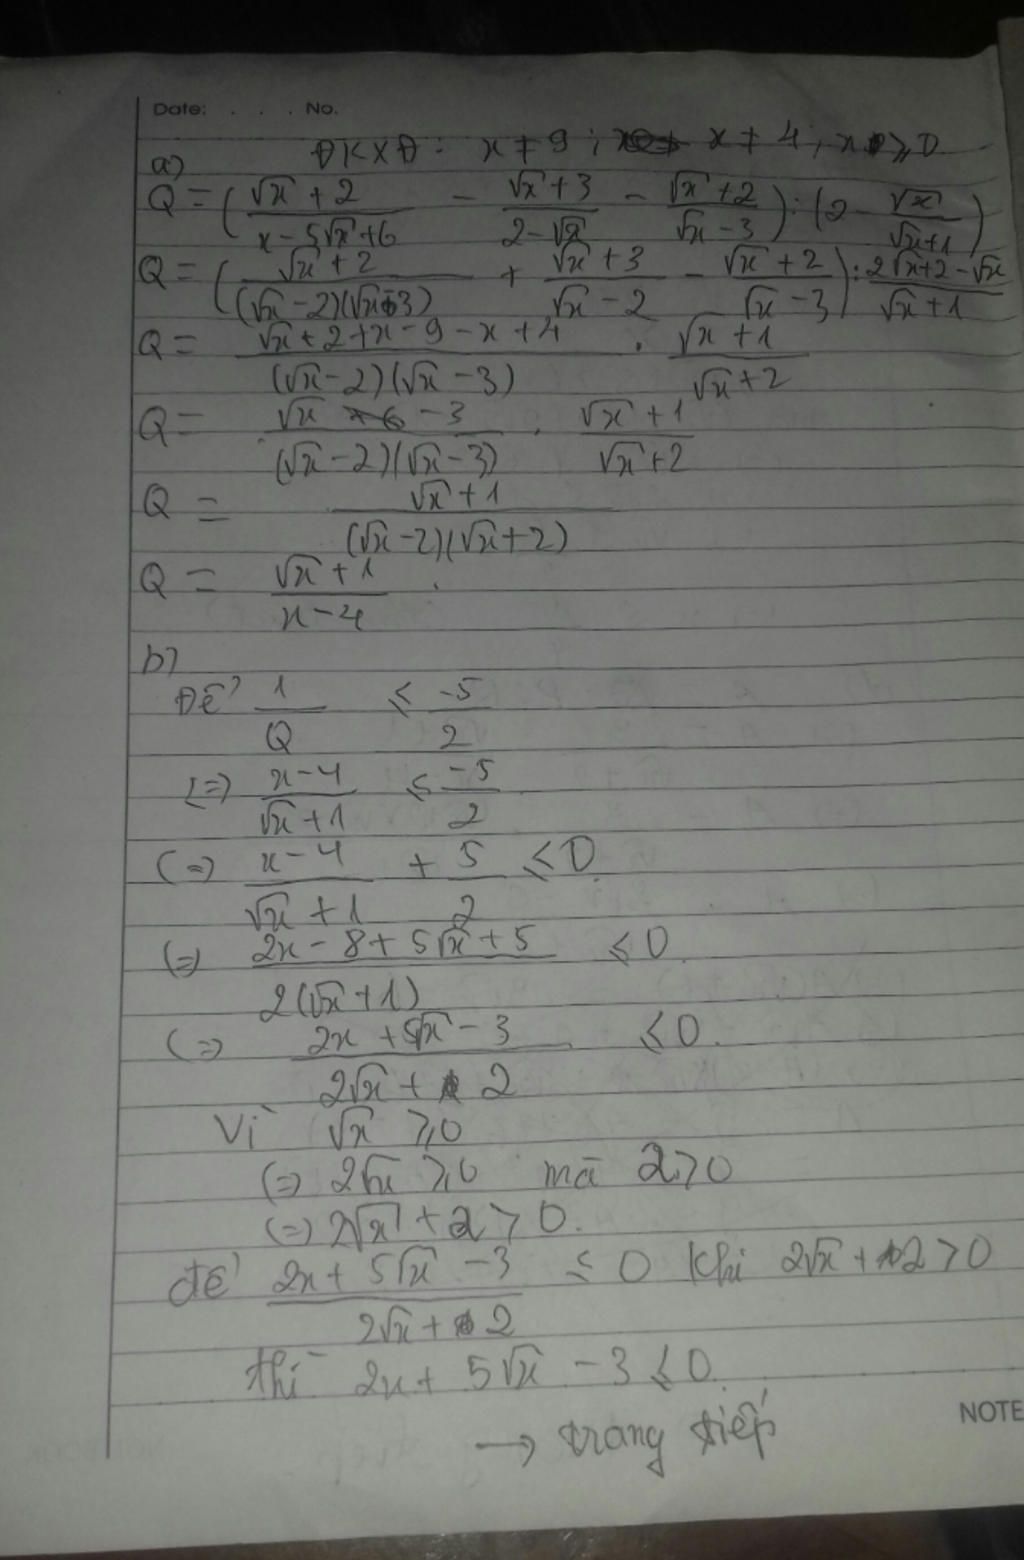 Date: . . . . No.
ĐKXĐ: x ≠ 9 ; x ≠ 4 ; x ⩾ 0
a)
Q = ( (√x + 2)/(x - 5√x + 6) - (√x + 3)/(2 - √x) - (√x + 2)/(√x - 3) ) : (2 - √x/(√x + 1))
Q = ( (√x + 2)/((√x - 2)(√x - 3)) + (√x + 3)/(√x - 2) - (√x + 2)/(√x - 3) ) : (2√x + 2 - √x)/(√x + 1)
Q = (√x + 2 + x - 9 - x + 4)/((√x - 2)(√x - 3)) . (√x + 1)/(√x + 2)
Q = (√x - 3)/((√x - 2)(√x - 3)) . (√x + 1)/(√x + 2)
Q = (√x + 1)/((√x - 2)(√x + 2))
Q = (√x + 1)/(x - 4) .
b)
Để 1/Q ⩽ -5/2
(=) (x - 4)/(√x + 1) ⩽ -5/2
(=) (x - 4)/(√x + 1) + 5/2 ⩽ 0.
(=) (2x - 8 + 5√x + 5)/(2(√x + 1)) ⩽ 0.
(=) (2x + 5√x - 3)/(2√x + 2) ⩽ 0.
Vì √x ⩾ 0
(=) 2√x ⩾ 0 mà 2 > 0
(=) 2√x + 2 > 0.
để (2x + 5√x - 3)/(2√x + 2) ⩽ 0 khi 2√x + 2 > 0
thì 2x + 5√x - 3 ⩽ 0.
→ trang tiếp
NOTE